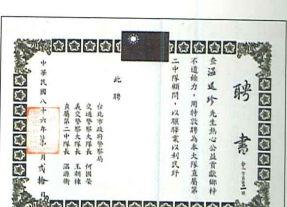 聘書
查温延珍先生熱心公益貢獻鄉梓
不遺餘力,用特敦聘為本大隊直屬第
二中隊顧問,以服務業以利民紓
此聘
台北市政府警察局
交通警察大隊長 何國榮
義交警察大隊長 王朝棟
直屬第二中隊長 温游衛
中華民國八十六年 月 拾 日